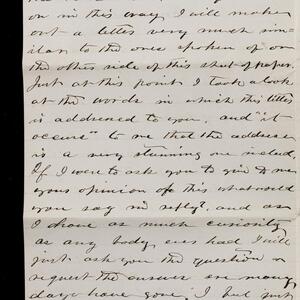 on in this way, I will make
out a letter very much sim-
ilar to the one spoken of on
the other side of this sheet of paper.
Just at this point I took a look
at the words in which this letter
is addressed to you, and "it
occurs" to me that the address
is a very stunning one indeed.
If I were to ask you to give to me
your opinion of this what would
you say in reply? and as
I have as much curiosity
as any body ever had I will
just ask you the question &
request the answer ere many
days have gone. I but